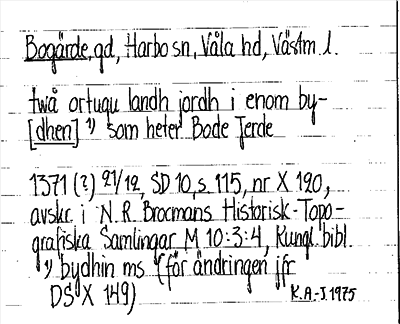 Bogärde, gd, Harbo sn, Våla hd, Västm. l.
twå ortugu landh jordh i enom by-
[dhen] ¹) som heter Bode Jerde
1371 (?) 21/12, SD 10, s. 115, nr X 120,
avskr. i N. R. Brocmans Historisk-Topo-
grafiska Samlingar M 10:3:4, Kungl. bibl.
¹) bydhin ms (för ändringen jfr
DS X 149)
K.A.-J. 1975